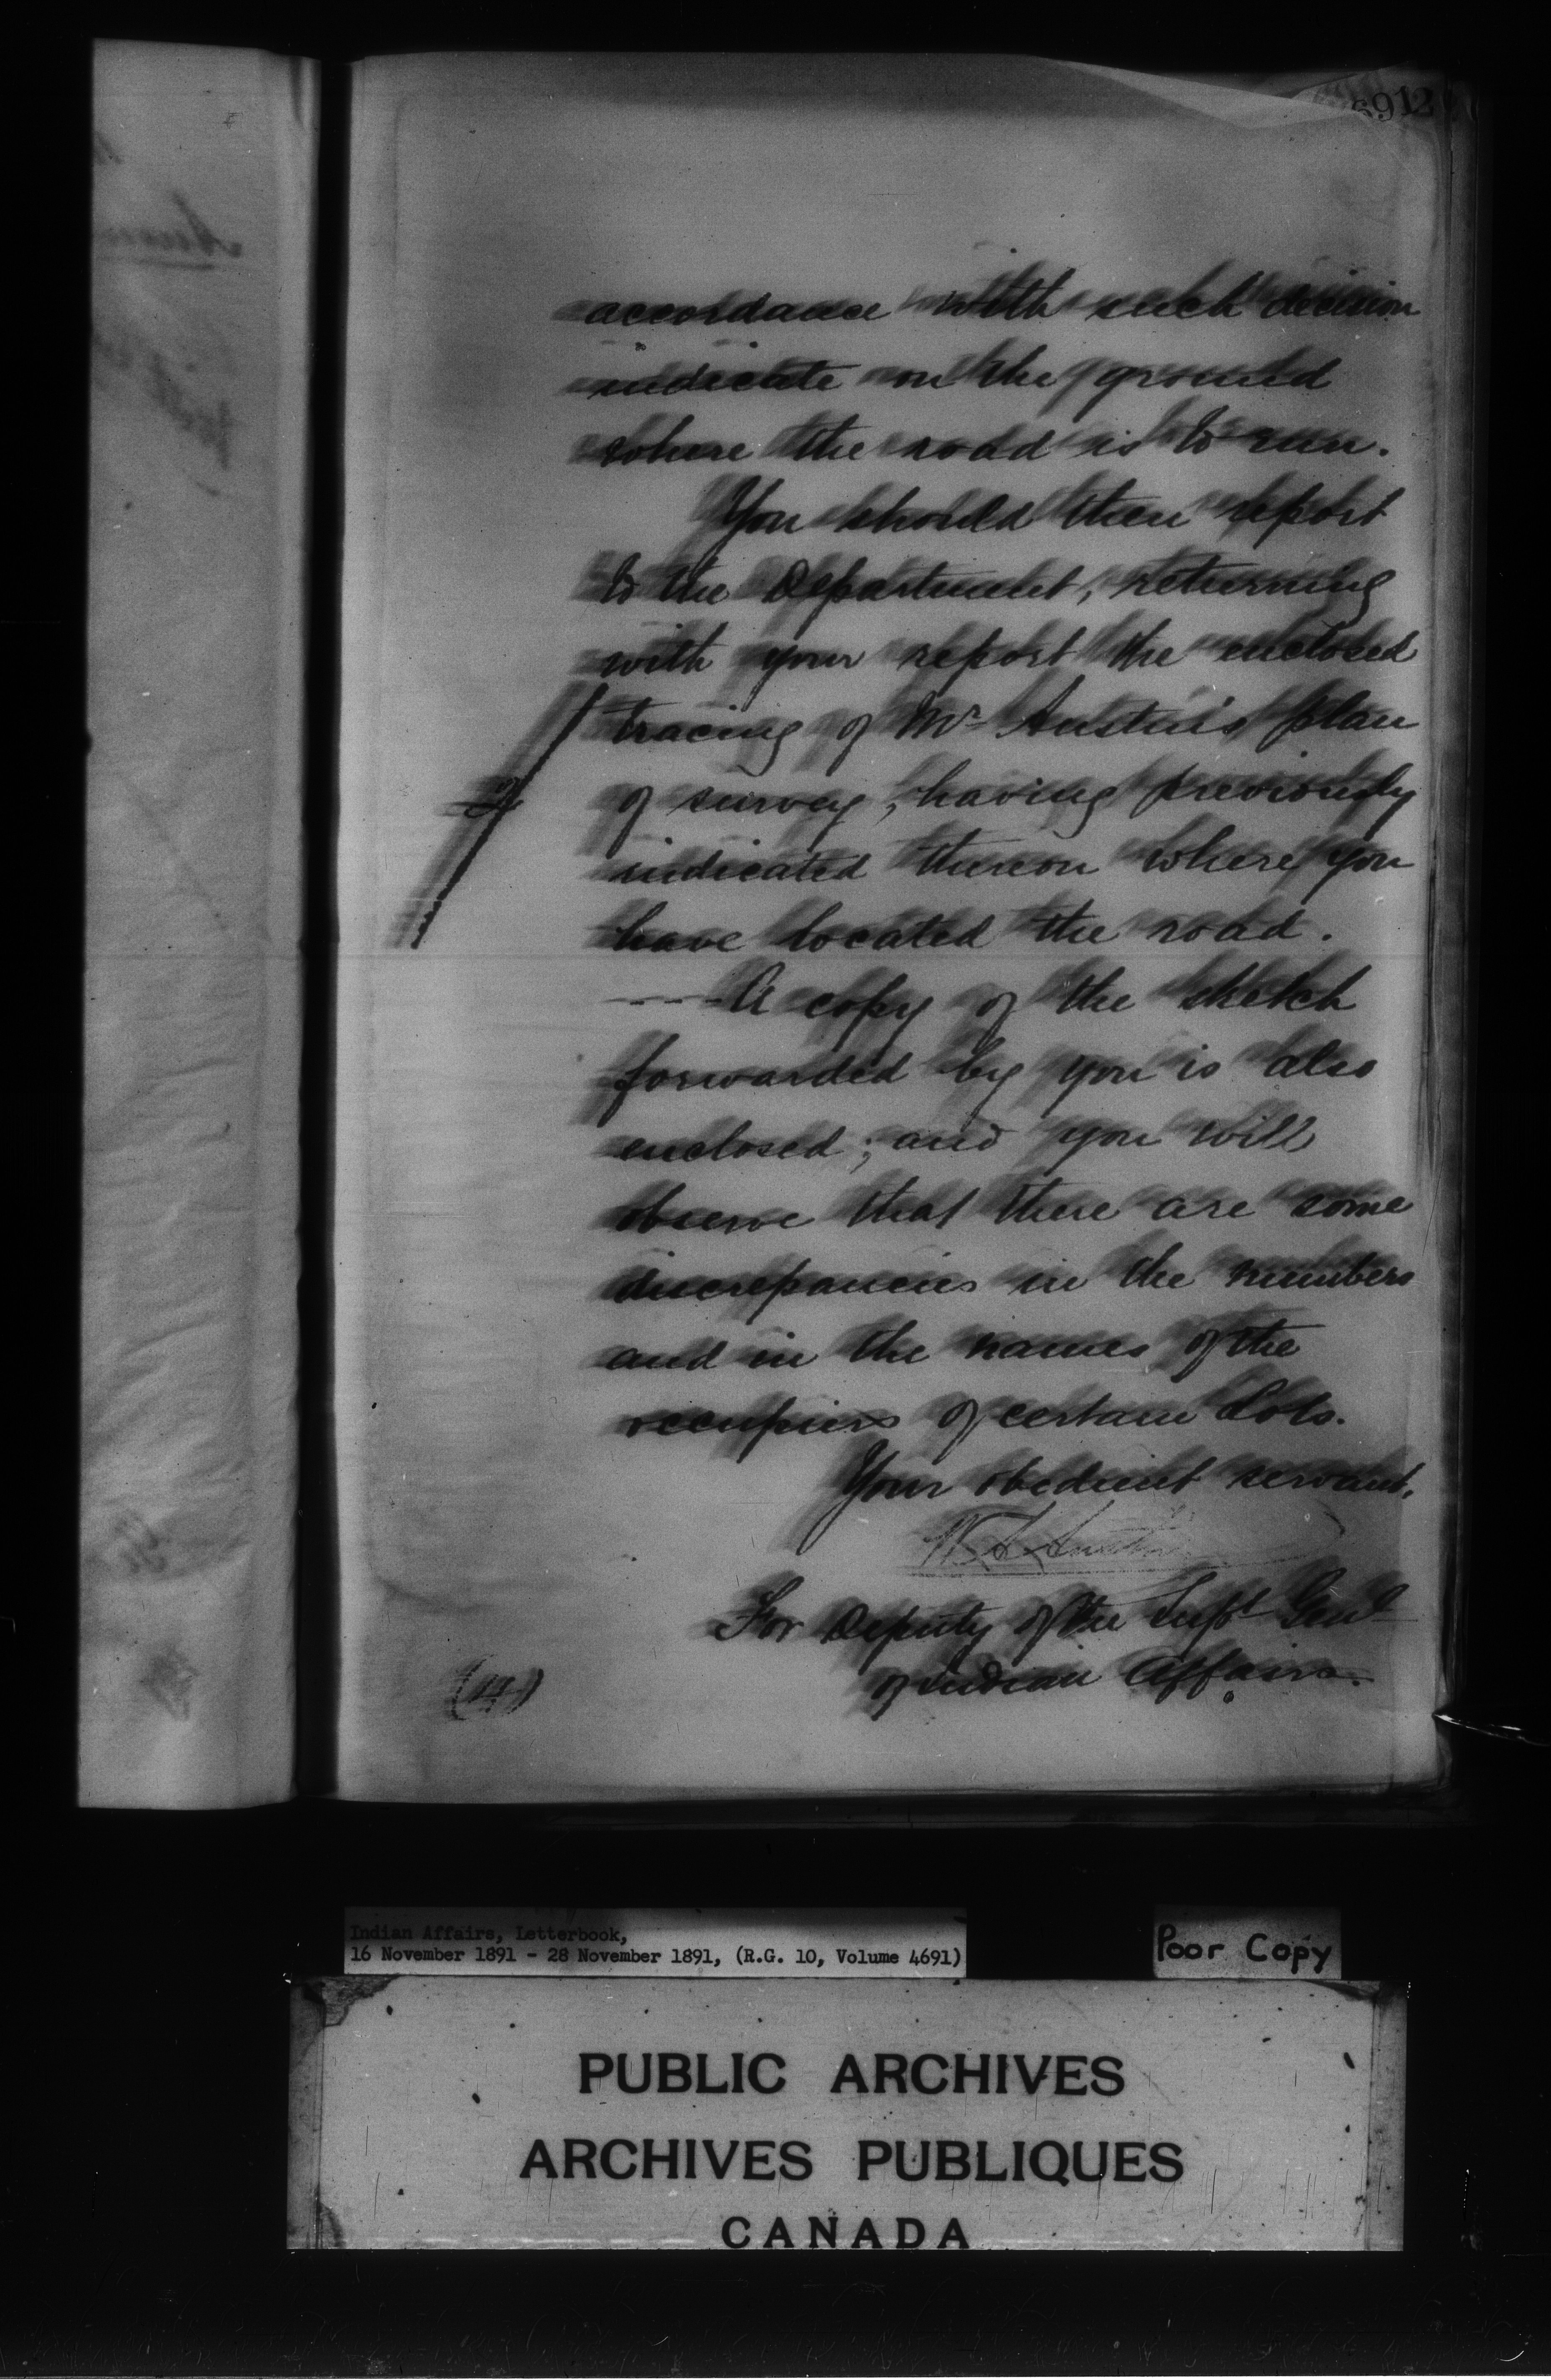 6912
accordance with such decision
indicate on the ground
where the road is to run.
You should then report
to the Department, returning
with your report the enclosed
tracing of Mr Austin's plan
of survey, having previously
indicated thereon where you
have located the road.
----A copy of the sketch
forwarded by you is also
enclosed; and you will
observe that there are some
discrepancies in the numbers
and in the names of the
occupiers of certain Lots.
Your obedient servant,
W A Austin
For Deputy of the Supt Genl
of Indian Affairs.
Indian Affairs, Letterbook,
16 November 1891 - 28 November 1891, (R.G. 10, Volume 4691)
Poor Copy
PUBLIC ARCHIVES
ARCHIVES PUBLIQUES
CANADA